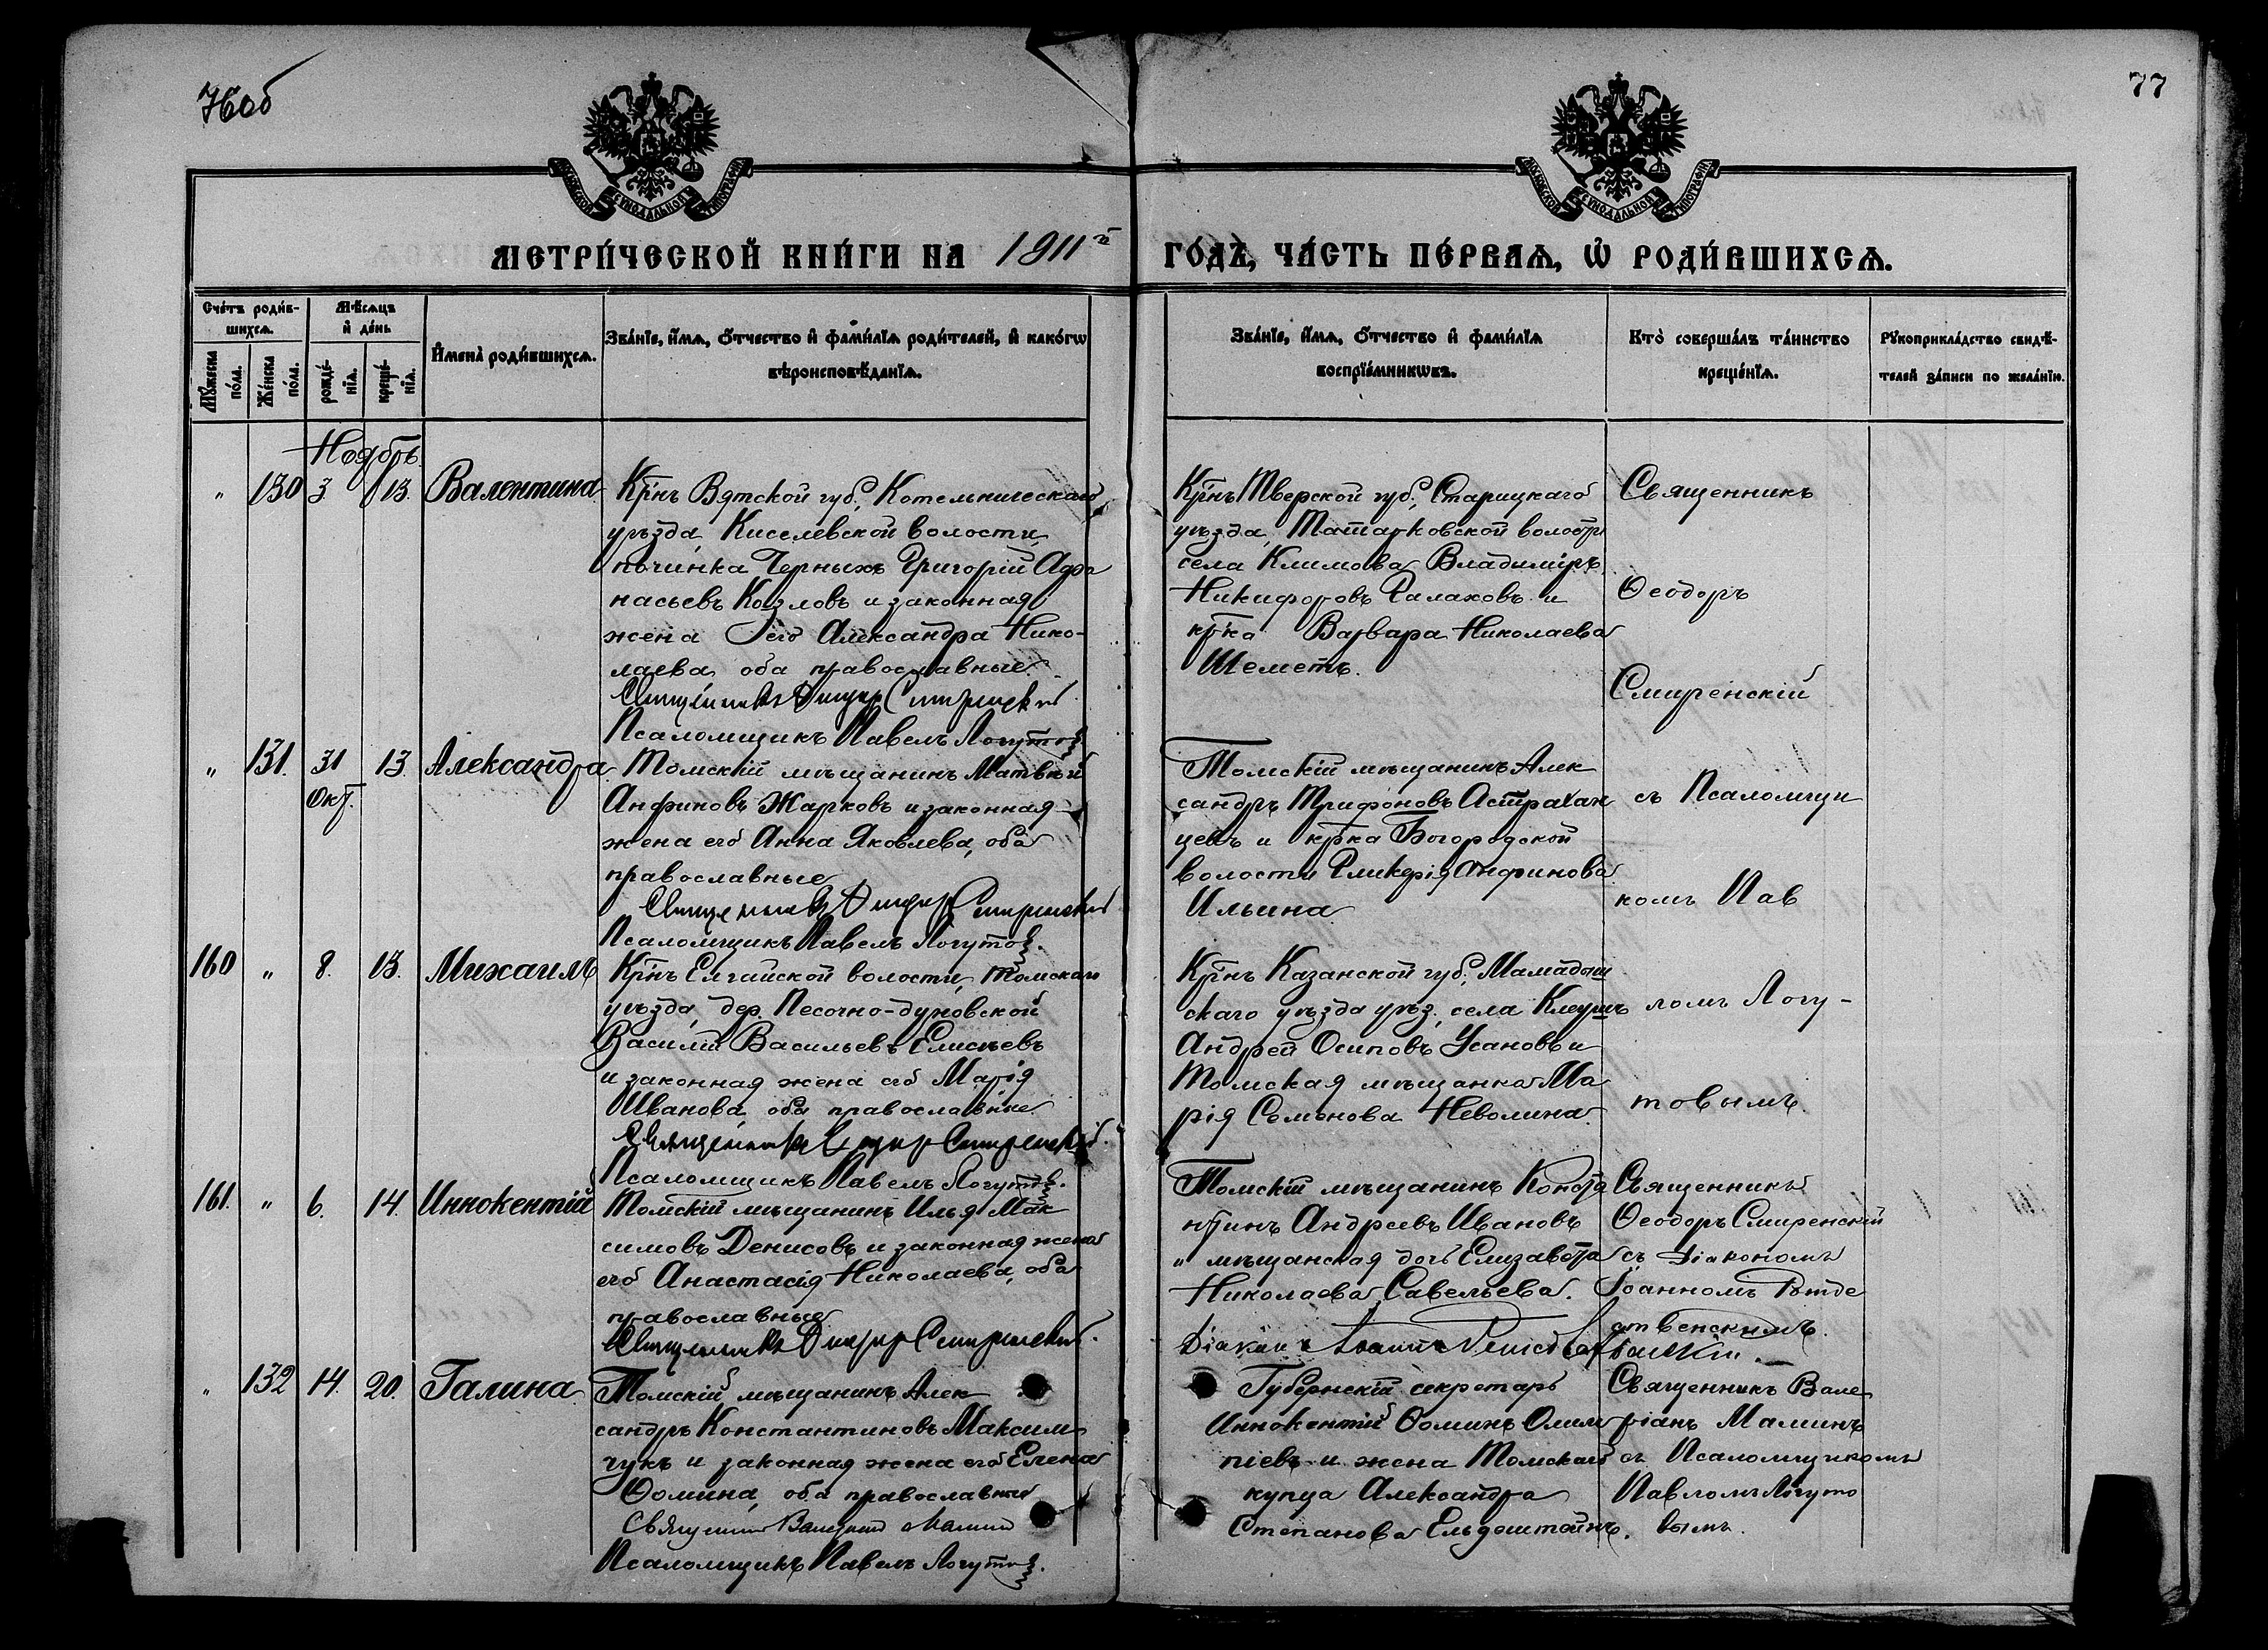 76об
77
МОСКОВСКОЙ СѴНОДАЛЬНОЙ ТИПОГРАФІИ
МОСКОВСКОЙ СѴНОДАЛЬНОЙ ТИПОГРАФІИ
МЕТРИ́ЧЕСКОЙ КНИ́ГИ НА 1911й ГО́ДЪ, ЧА́СТЬ ПЕ́РВАѦ, Ѡ҆ РОДИ́ВШИХСѦ.
Сче́тъ роди́в-
шихсѧ.
Мѣ́сѧцъ
и҆ де́нь
Мꙋ́жеска
по́ла.
Же́нска
по́ла.
рожде́-
нїѧ.
креще́-
нїѧ.
И҆мена̀ роди́вшихсѧ.
Зва́нїе, и҆́мѧ, ѻ҆́тчество и҆ фами́лїѧ роди́телей, и҆ како́гѡ
вѣроисповѣ́данїѧ.
Зва́нїе, и҆́мѧ, ѻ҆́тчество и҆ фами́лїѧ
воспрїе́мникѡвъ.
Кто̀ соверша́лъ та́инство
креще́нїѧ.
Рꙋкоприкла́дство свидѣ́-
телей за́писи по жела́нїю.
Ноябрь
" 130 3 13. Валентина
Крнъ Вятской губ., Котельническаго
уѣзда, Киселевской волости,
починка Черныхъ Григорій Афа
насьевъ Козловъ и законная
жена его Александра Нико-
лаева, оба православные.
Священникъ Ѳеодоръ Смиренскій
Псаломщикъ Павелъ Логутовъ
Крнъ Тверской губ., Старицкаго
уѣзда, Татарковской волости
села Климова Владиміръ
Никифоровъ Галаховъ и
крка Варвара Николаева
Шеметъ.
Священникъ
Ѳеодоръ
Смиренскій
" 131. 31 Окт. 13. Александра
Томскій мѣщанинъ Матвѣй
Анфиновъ Жарковъ и законная
жена его Анна Яковлева, оба
православные
Священникъ Ѳеодоръ Смиренскій
Псаломщикъ Павелъ Логутовъ.
Томскій мѣщанинъ Алек
сандръ Трифоновъ Астрахан
цевъ и крка Богородской
волости Гликерія Анфинова
Ильина
съ Псаломщи
комъ Пав
160 " 8. 13. Михаилъ
Крнъ Елгайской волости, Томскаго
уѣзда, дер. Песочно-дуновской
Василій Васильевъ Елисѣевъ
и законная жена его Марія
Иванова, оба православные
Священникъ Ѳеодоръ Смиренскій.
Псаломщикъ Павелъ Логутовъ.
Крнъ Казанской губ., Мамадыш
скаго уѣзда уѣз., села Клеушъ
Андрей Осиповъ Усановъ и
Томская мѣщанка Ма
рія Семенова Неволина.
ломъ Логу-
товымъ.
161. " 6. 14. Иннокентій
Томскій мѣщанинъ Илья Мак
симовъ Денисовъ и законная жена
его Анастасія Николаева, оба
православные
Священникъ Ѳеодоръ Смиренскій.
Томскій мѣщанинъ Конста
нтинъ Андреевъ Ивановъ
" мѣщанская дочь Елизавета
Николаева Савельева.
Діаконъ Іоаннъ
Священникъ
Ѳеодоръ Смиренскій
съ Діакономъ
Іоанномъ Рожде
ственскимъ.
" 132 14. 20. Галина
Томскій мѣщанинъ Алек
сандръ Константиновъ Максим
чукъ и законная жена его Елена
Ѳомина, оба православные
Священникъ Валеріанъ Маминъ
Псаломщикъ Павелъ Логутовъ.
Губернскій секретарь
Иннокентій Ѳоминъ Олим
піевъ и жена Томскаго
купца Александра
Степанова Ельдештейнъ.
Священникъ Вале
ріанъ Маминъ
съ Псаломщикомъ
Павломъ Логуто
вымъ.